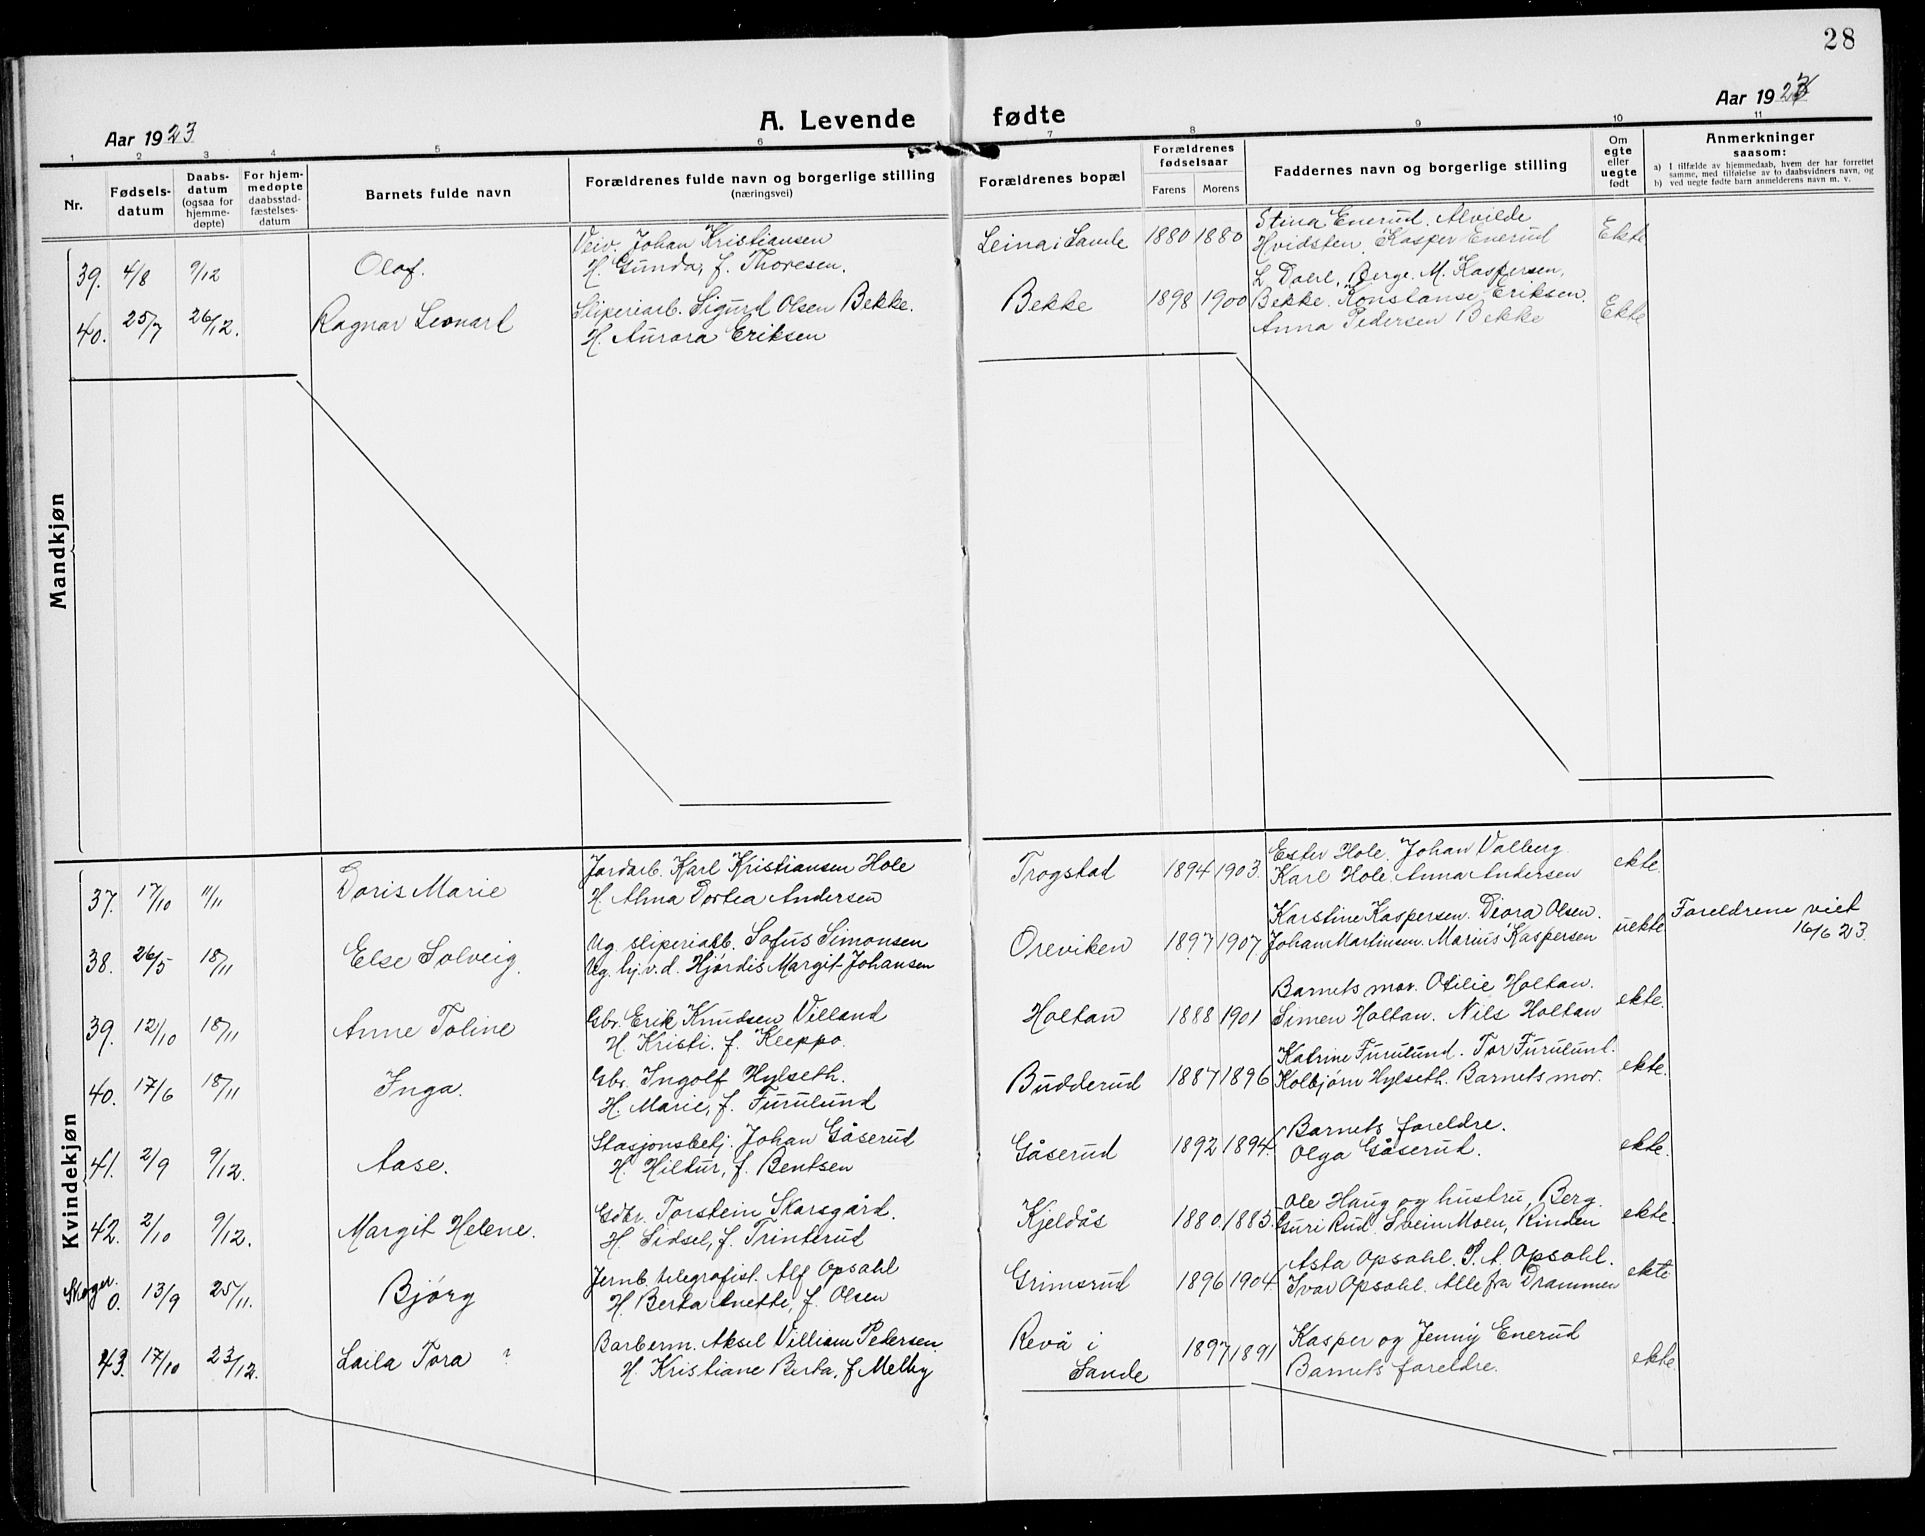 28
Aar 1923
A. Levende fødte
Aar 1923
1 2 3 4 5 6 7 8 9 10 11
Nr.
Fødsels-
datum
Daabs-
datum
(ogsaa for
hjemme-
døpte)
For hjem-
medøpte
daabsstad-
fæstelses-
datum
Barnets fulde navn
Forældrenes fulde navn og borgerlige stilling
(næringsvei)
Forældrenes bopæl
Forældrenes
fødselsaar
Farens Morens
Faddernes navn og borgerlige stilling
Om
egte
eller
uegte
født
Anmerkninger
saasom:
a) I tilfælde av hjemmedaab, hvem der har forrettet
samme, med tilføielse av to daabsvidners navn, og
b) ved uegte fødte barn anmelderens navn m. v.
Mandkjøn
39. 4/8 9/12 Olaf.
Veiv. Johan Kristiansen
H. Gunda, f. Thoresen.
Leina i Sande 1880 1880
Stina Enerud. Alvilde
Hvidsten. Kasper Enerud
Ekte
40. 25/7 26/12. Ragnar Leonart
Sliperiarb. Sigurd Olsen Bekke.
H. Aurora Eriksen
Bekke 1898 1900
L. Daerl, Berge. M. Kaspersen,
Bekke. Konstanse Eriksen.
Anna Pedersen Bekke
Ekte
Kvindekjøn
37. 17/10 11/11 Doris Marie
Jordarb. Karl Kristiansen Hole
H. Alma Dortea Andersen
Trogstad 1894 1903.
Ester Hole. Johan Valberg.
Karl Hole. Anna Andersen
ekte.
38. 26/5 18/11 Else Solveig.
Ug. sliperiarb. Sofus Simonsen
Ug. hj.v.d. Hjørdis Margit Johansen
Oreviken 1897 1907.
Karstine Kaspersen. Deora Olsen.
Johan Martinsen. Marius Kaspersen
uekte
Foreldrene viet
16/6 23.
39. 12/10 18/11 Anne Toline
Gbr. Erik Knudsen Villand
H. Kristi. f. Kleppo.
Holtan 1888 1901
Barnets mor. Otilie Holtan.
Simen Holtan. Nils Holtan
ekte.
40. 17/6 18/11 Inga.
Gbr. Ingolf Hylseth.
H. Marie, f. Furulund
Budderud 1887 1896
Katrine Furulund. Tor Furulund.
Kolbjørn Hylseth. Barnets mor.
ekte.
41. 2/9 9/12. Aase.
Stasjonsbetj. Johan Gåserud
H. Hildur, f. Bentsen
Gåserud 1892 1894.
Barnets foreldre.
Olga Gåserud.
ekte.
42. 2/10 9/12. Margit Helene.
Gdbr. Torstein Skarsgård.
H. Sidsel, f. Trinterud
Kjeldås 1880. 1885.
Ole Haug og hustru, Berg.
Guri Rud. Svein Moen, Rinden
ekte.
Skoger. 0. 13/9 25/11. Bjørg
Jernb. telegrafist. Alf Opsahl
H. Berta Anette, f. Olsen
Grimsrud 1896 1904.
Asta Opsahl. P. A. Opsahl.
Ivar Opsahl. Alle fra Drammen
ekte
43. 17/10 23/12. Laila Tora ?
Barberm. Aksel Villiam Pedersen
H. Kristiane Berta, f Melby
Revå i
Sande
1897 1891
Kasper og Jenny Enerud
Barnets foreldre.
ekte.